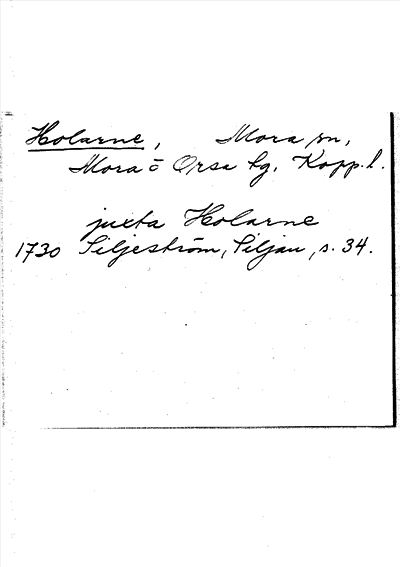 Holarne, Mora sn,
Mora o Orsa tg. Kopp. l.
juxta Holarne
1730 Siljeström, Siljan, s. 34.